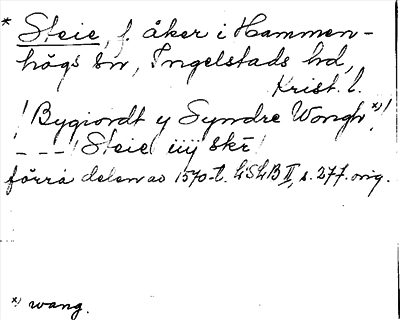 * Steie, f. åker i Hammen-
högs sn, Ingelstads hd,
Krist. l.
/ Bygiordt y Syndre Wongh *) /
- - - / Steie iiij skr /
förra delen av 1570-t. LSLB II, s. 277. orig.
*) wang.